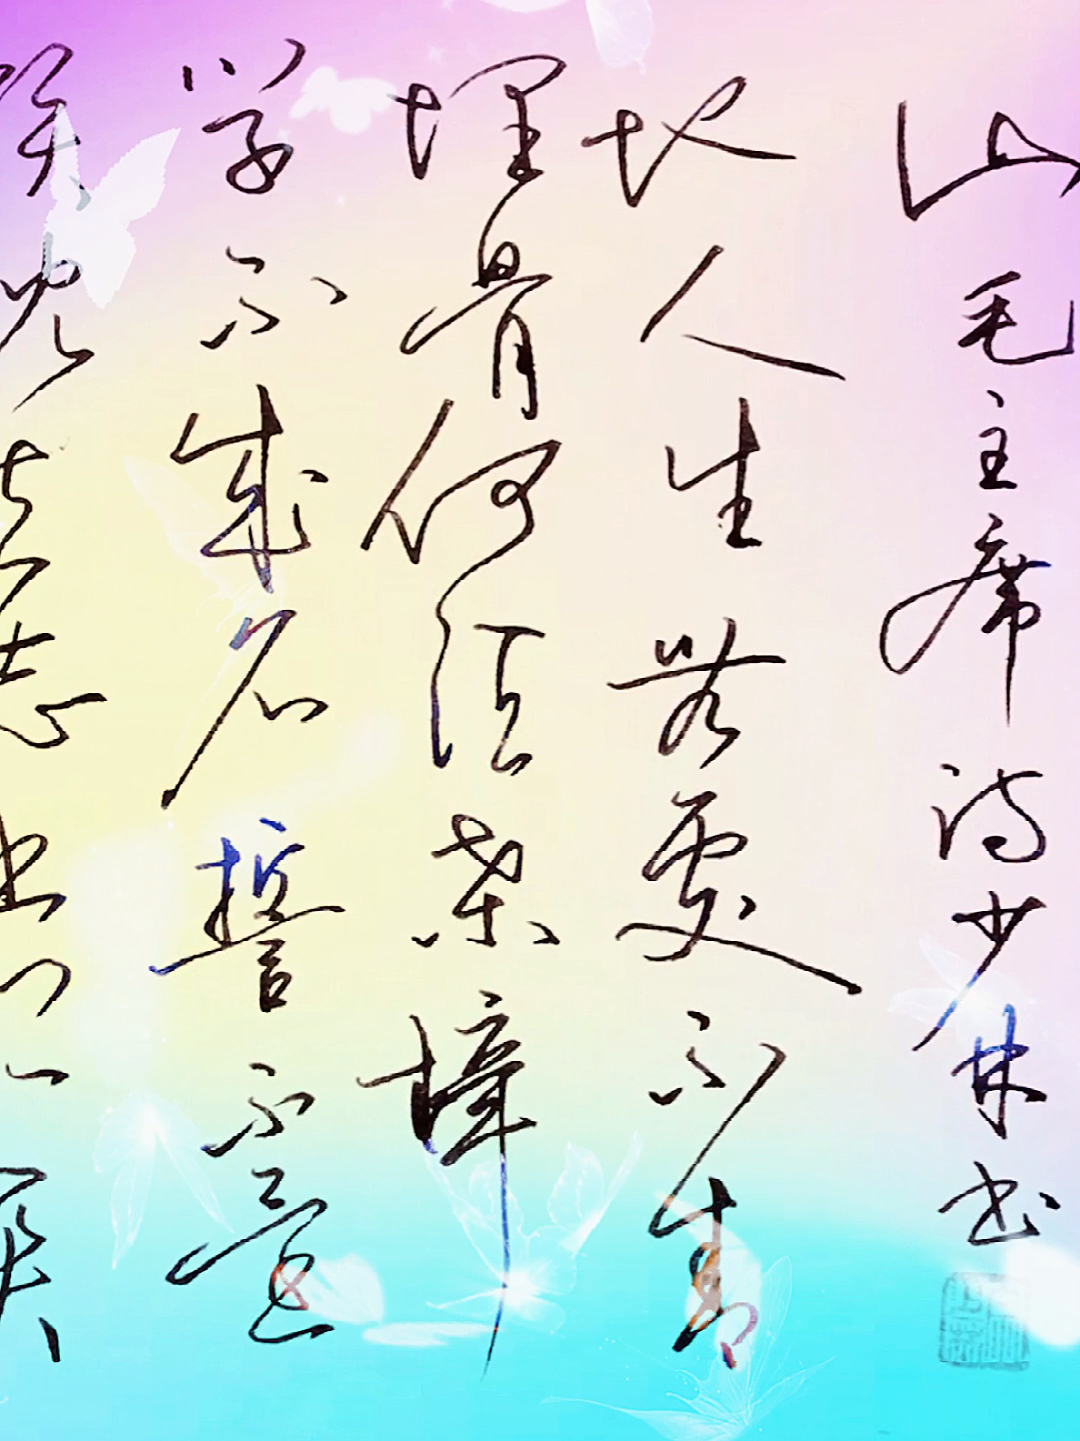 孩儿立志出乡关
学不成名誓不还
埋骨何须桑梓
地人生无处不青
山毛主席诗少林书